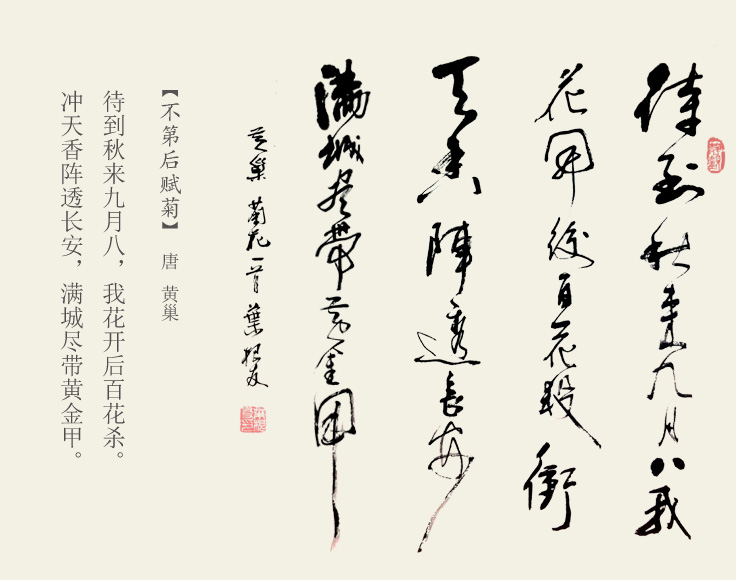 待到秋來九月八我
花開後百花殺衝
天香陣透長安
滿城尽帶黄金甲
黄巢 菊花一首 葉根友
【不第后赋菊】 唐 黄巢
待到秋来九月八，我花开后百花杀。
冲天香阵透长安，满城尽带黄金甲。